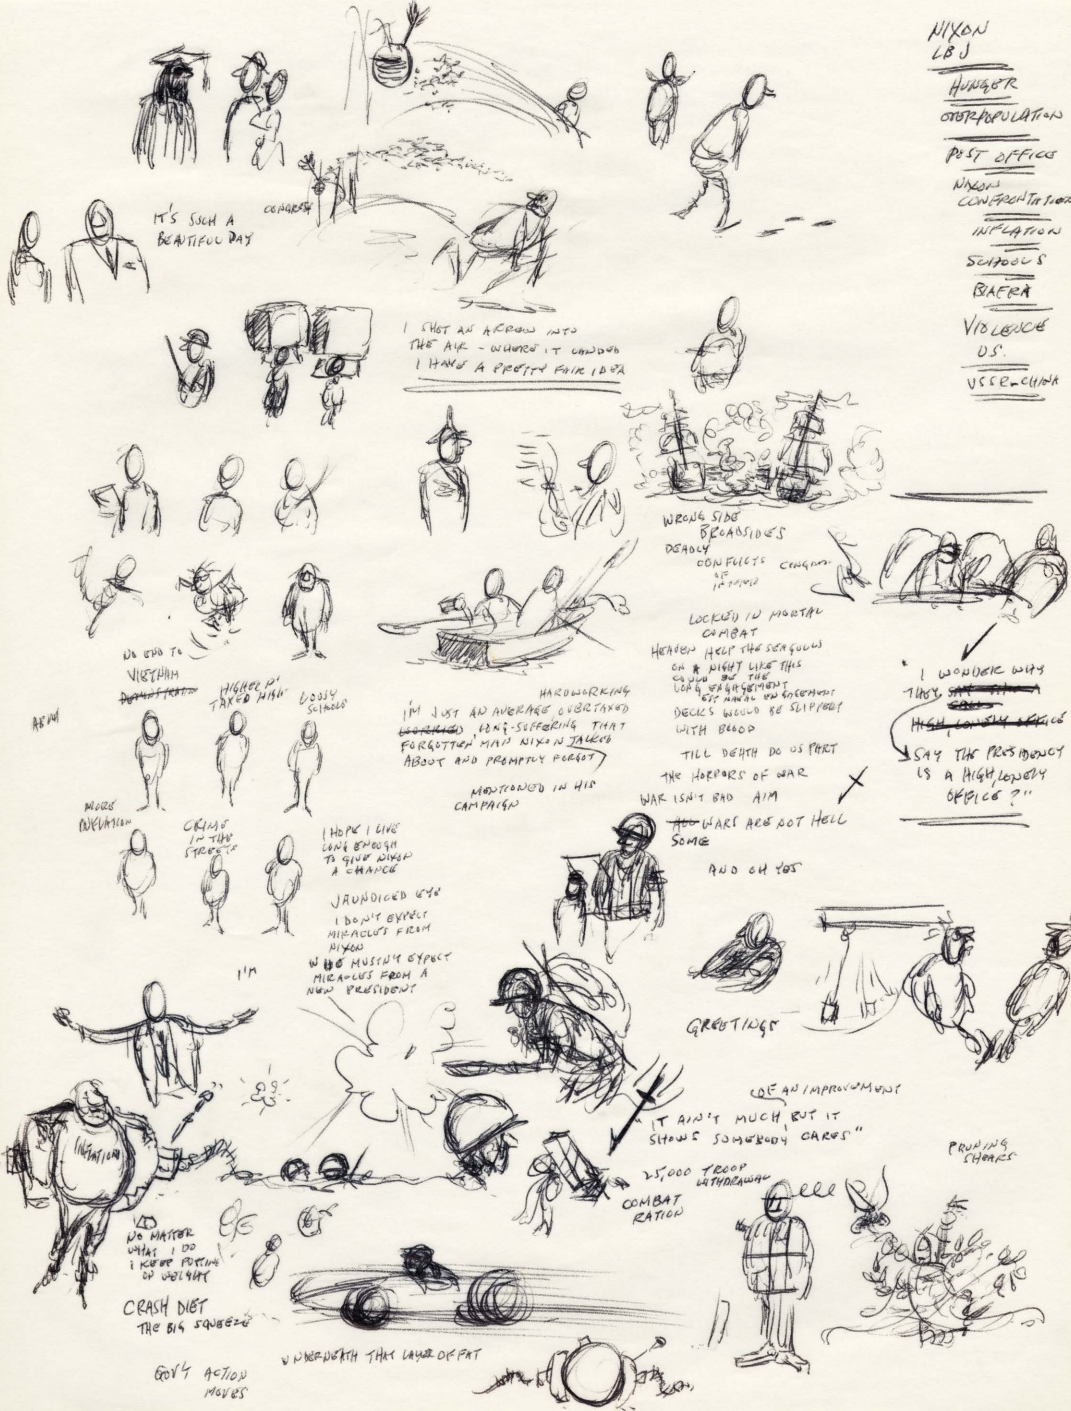 NIXON
LBJ
HUNGER
OVERPOPULATION
POST OFFICE
NIXON
CONFRONTATION
INFLATION
SCHOOLS
BIAFRA
VIOLENCE
U.S.
USSR-CHINA
IT'S SUCH A
BEAUTIFUL DAY
CONGRESS
I SHOT AN ARROW INTO
THE AIR - WHERE IT LANDED
I HAVE A PRETTY FAIR IDEA
WRONG SIDE
BROADSIDES
DEADLY
CONFLICTS
OF
LOCKED IN MORTAL
COMBAT
HEAVEN HELP THE SEAGULLS
ON A NIGHT LIKE THIS
COULD BE THE
LONG ENGAGEMENT
NAVAL ENGAGEMENT
DECKS WOULD BE SLIPPERY
WITH BLOOD
TILL DEATH DO US PART
THE HORRORS OF WAR
WAR ISN'T BAD AIM
ALL WARS ARE NOT HELL
SOME
AND OH YES
"I WONDER WHY
THEY SAY THE A
HIGH, LONELY OFFICE
SAY THE PRESIDENCY
IS A HIGH, LONELY
OFFICE?"
NO END TO
VIETNAM
HIGHER N'
TAXED NIGH
LOUSY
SCHOOLS
ABM
HARDWORKING
I'M JUST AN AVERAGE OVERTAXED
WORRIED LONG-SUFFERING THAT
FORGOTTEN MAN NIXON TALKED
ABOUT AND PROMPTLY FORGOT
MENTIONED IN HIS
CAMPAIGN
MORE
INFLATION
CRIME
IN THE
STREETS
I HOPE I LIVE
LONG ENOUGH
TO GIVE NIXON
A CHANCE
JAUNDICED EYE
I DON'T EXPECT
MIRACLES FROM
NIXON
WE MUSTN'T EXPECT
MIRACLES FROM A
NEW PRESIDENT
I'M
GREETINGS
OF AN IMPROVEMENT
"IT AIN'T MUCH BUT IT
SHOWS SOMEBODY CARES"
25,000 TROOP
WITHDRAWAL
COMBAT
RATION
PRUNING
SHEARS
INFLATION
NO MATTER
WHAT I DO
I KEEP PUTTING
ON WEIGHT
CRASH DIET
THE BIG SQUEEZE
UNDERNEATH THAT LAYER OF FAT
GOV'T ACTION
MOVES